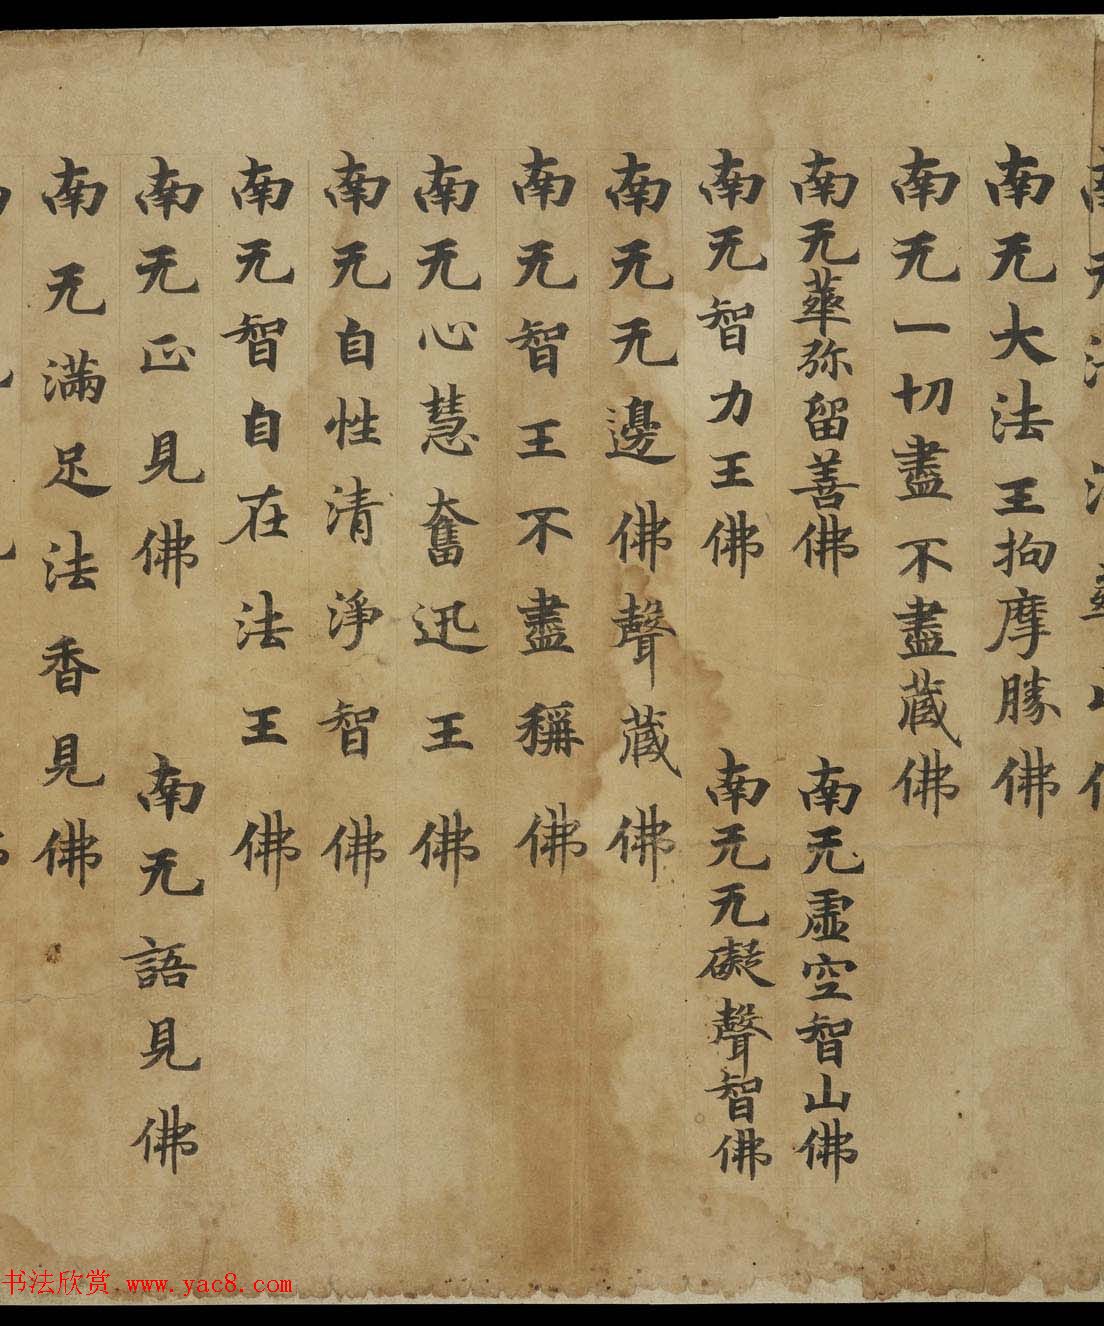 南无法
南无大法王拘摩勝佛
南无一切盡不盡藏佛
南无華弥留善佛 南无虛空智山佛
南无智力王佛 南无无礙聲智佛
南无无邊佛聲藏佛
南无智王不盡稱佛
南无心慧奮迅王佛
南无自性清淨智佛
南无智自在法王佛
南无正見佛 南无語見佛
南无滿足法香見佛
书法欣赏 www.yac8.com